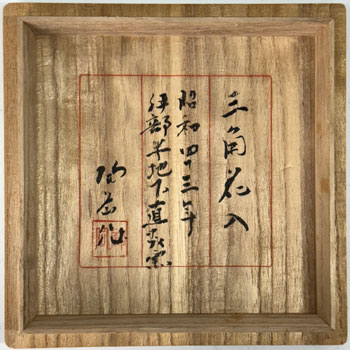 三角花入
昭和四十三年
伊部半地下直炎窯
陶岳